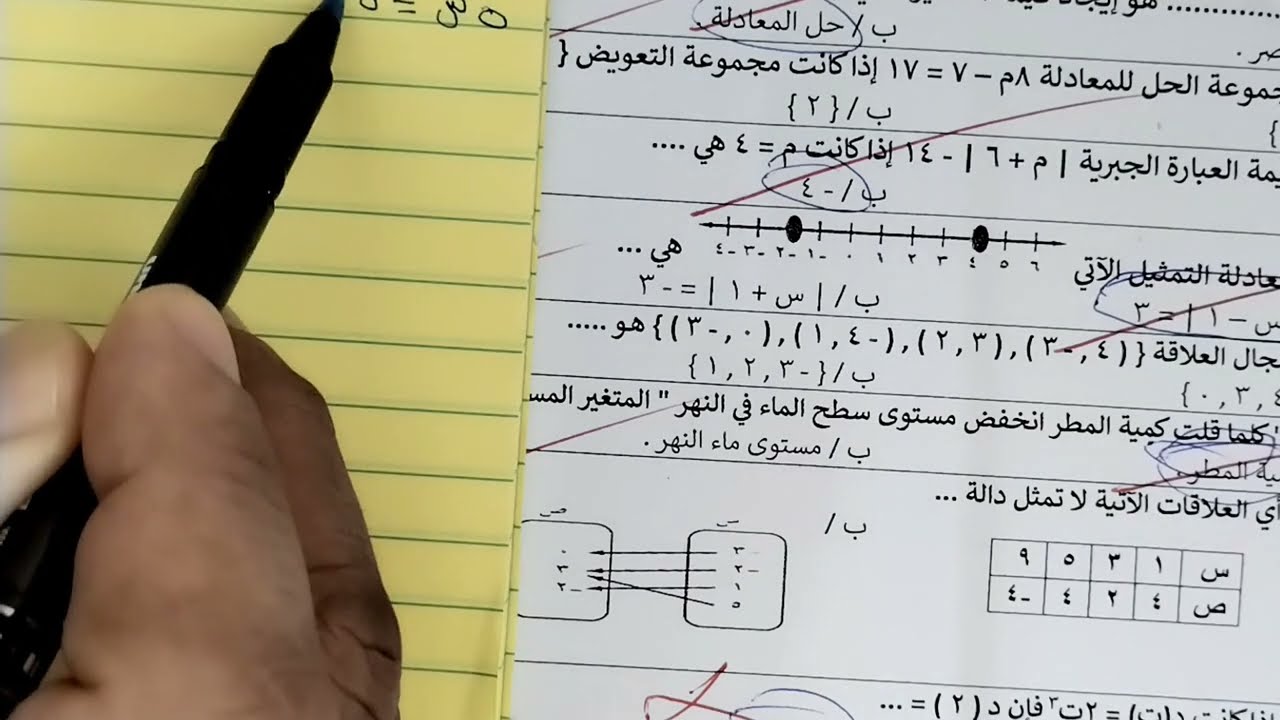 هو إيجاد
ب / حل المعادلة .
مجموعة الحل للمعادلة ٨م – ٧ = ١٧ إذا كانت مجموعة التعويض {
ب / { ٢ }
العبارة الجبرية | م + ٦ | - ١٤ إذا كانت م = ٤ هي ....
ب / - ٤
-٤ -٣ -٢ -١ ٠ ١ ٢ ٣ ٤ ٥ ٦
التمثيل الآتي هي ...
س – ١ | = ٣ ب / | س + ١ | = - ٣
مجال العلاقة { ( ٤ , -٣ ) , ( ٣ , ٢ ) , ( -٤ , ١ ) , ( ٠ , -٣ ) } هو .....
٣ , ٠ } ب / { -٣ , ٢ , ١ }
" كلما قلت كمية المطر انخفض مستوى سطح الماء في النهر " المتغير
المطر . ب / مستوى ماء النهر .
أي العلاقات الآتية لا تمثل دالة ...
ب /
س ص
س ١ ٣ ٥ ٩
ص ٤ ٢ ٤ -٤
٣ ٠
-٢ ٣
١ -٢
٥
كانت د(ت) = ٢ت٣ فإن د ( ٢ ) = ...